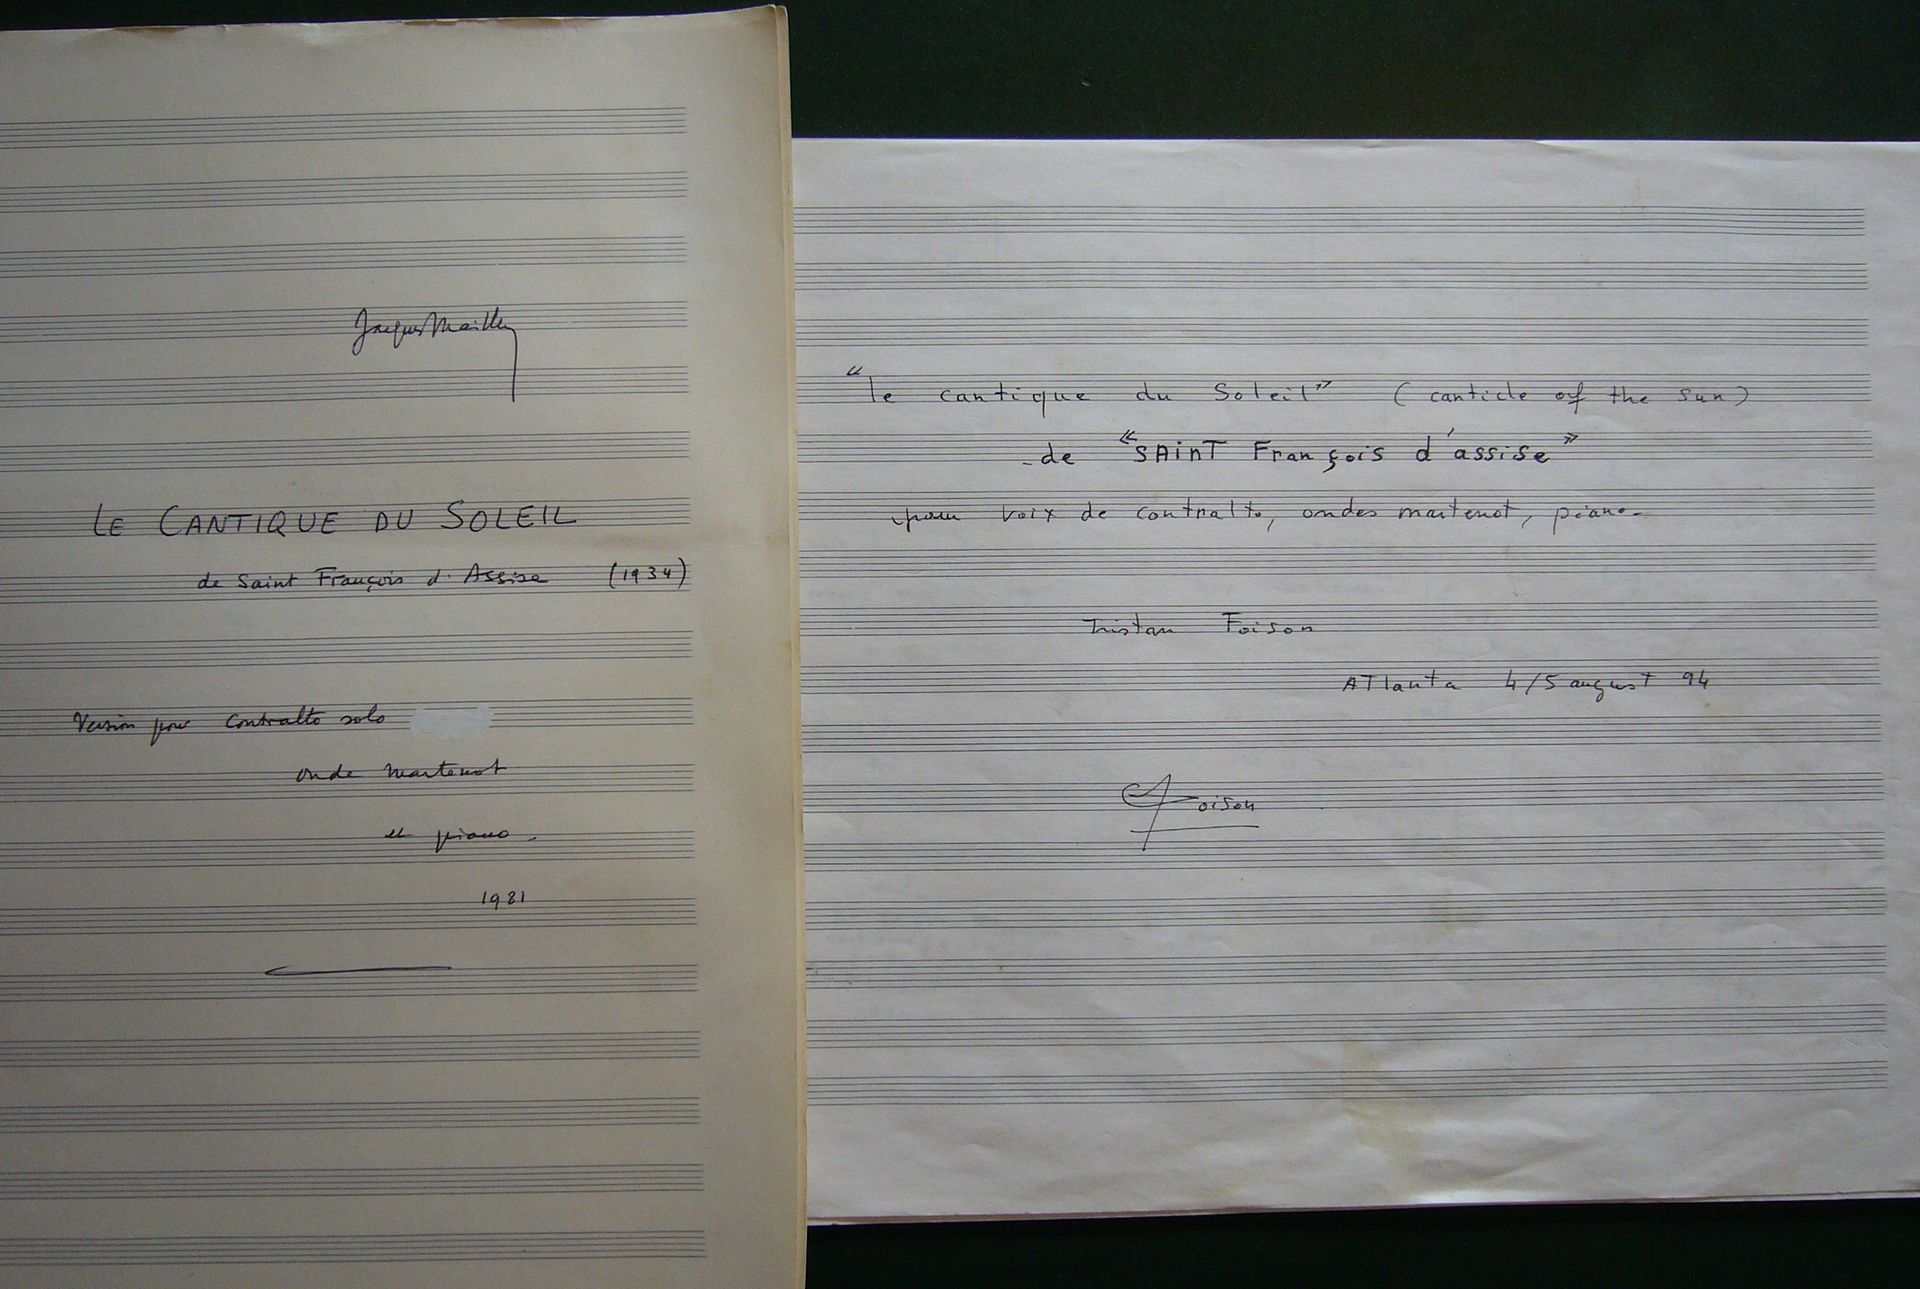 Jacques Mailly
LE CANTIQUE DU SOLEIL
de Saint François d'Assise (1934)
Version pour contralto solo
onde martenot
et piano.
1981
"le cantique du Soleil" (canticle of the sun)
de «SAinT François d'assise»
pour voix de contralto, ondes martenot, piano.
Tristan Foison
ATlanta 4/5 august 94
Foison